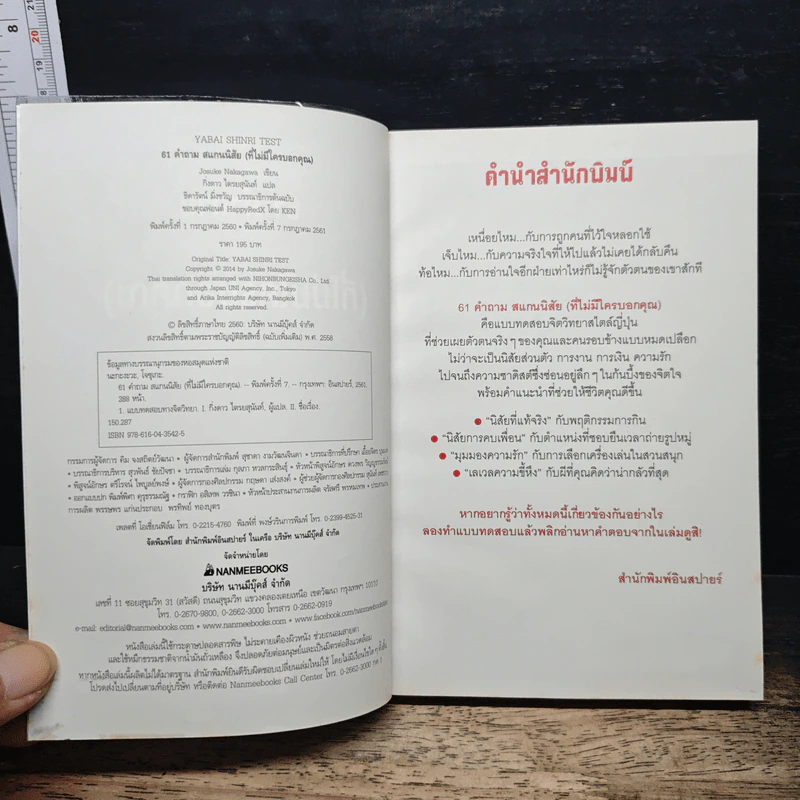 8
20
19
18
17
YABAI SHINRI TEST
61 คำถาม สแกนนิสัย (ที่ไม่มีใครบอกคุณ)
Josuke Nakagawa เขียน
กิ่งดาว ไตรยสุนันท์ แปล
ธิดารัตน์ มิ่งขวัญ บรรณาธิการต้นฉบับ
ขอบคุณฟอนต์ HappyRedX โดย KEN
พิมพ์ครั้งที่ 1 กรกฎาคม 2560 • พิมพ์ครั้งที่ 7 กรกฎาคม 2561
ราคา 195 บาท
Original Title: YABAI SHINRI TEST
Copyright © 2014 by Josuke Nakagawa
Thai translation rights arranged with NIHONBUNGEISHA Co., Ltd.
through Japan UNI Agency, Inc., Tokyo
and Arika Interrights Agency, Bangkok
All rights reserved.
© ลิขสิทธิ์ภาษาไทย 2560: บริษัท นานมีบุ๊คส์ จำกัด
สงวนลิขสิทธิ์ตามพระราชบัญญัติลิขสิทธิ์ (ฉบับเพิ่มเติม) พ.ศ. 2558
ข้อมูลทางบรรณานุกรมของหอสมุดแห่งชาติ
นะกะงะวะ, โจซุเกะ.
61 คำถาม สแกนนิสัย (ที่ไม่มีใครบอกคุณ). -- พิมพ์ครั้งที่ 7. -- กรุงเทพฯ: อินสปายร์, 2561.
288 หน้า.
1. แบบทดสอบทางจิตวิทยา. I. กิ่งดาว ไตรยสุนันท์, ผู้แปล. II. ชื่อเรื่อง.
150.287
ISBN 978-616-04-3542-5
กรรมการผู้จัดการ คิม จงสถิตย์วัฒนา • ผู้จัดการสำนักพิมพ์ สุชาดา งามวัฒนจินดา • บรรณาธิการที่ปรึกษา
• บรรณาธิการบริหาร สุวพันธ์ ชัยปัจชา • บรรณาธิการเล่ม กุลภา หวลกระสินธุ์ • หัวหน้าพิสูจน์อักษร ดวงพร
พิสูจน์อักษร ตรีโรจน์ ไพบูลย์พงษ์ • ผู้จัดการกองศิลปกรรม กฤษดา เส่งสงค์ • ผู้ช่วยผู้จัดการกองศิลปกรรม
• ออกแบบปก พิมพ์พิศา คุรุธรรมณัฐ • กราฟิก อสิเทพ วรชินา • หัวหน้าประสานงานการผลิต จริพศรี พรหมเทพ •
การผลิต พรรษพร แก่นประกอบ พรทิพย์ ทองบุตร
เพลตที่ โอเชี่ยนฟิล์ม โทร. 0-2215-4760 พิมพ์ที่ พงษ์วรินการพิมพ์ โทร. 0-2399-4525-31
จัดพิมพ์โดย สำนักพิมพ์อินสปายร์ ในเครือ บริษัท นานมีบุ๊คส์ จำกัด
จัดจำหน่ายโดย
NANMEEBOOKS
บริษัท นานมีบุ๊คส์ จำกัด
เลขที่ 11 ซอยสุขุมวิท 31 (สวัสดี) ถนนสุขุมวิท แขวงคลองเตยเหนือ เขตวัฒนา กรุงเทพฯ 10110
โทร. 0-2670-9800, 0-2662-3000 โทรสาร 0-2662-0919
e-mail: editorial@nanmeebooks.com www.nanmeebooks.com www.facebook.com/nanmeebooksfan
หนังสือเล่มนี้ใช้กระดาษปลอดสารพิษ ไม่ระคายเคืองผิวหนัง ช่วยถนอมสายตา
และใช้หมึกธรรมชาติจากน้ำมันถั่วเหลือง จึงปลอดภัยต่อมนุษย์และเป็นมิตรต่อสิ่งแวดล้อม
หากหนังสือเล่มนี้ผลิตไม่ได้มาตรฐาน สำนักพิมพ์ยินดีรับผิดชอบเปลี่ยนเล่มใหม่ให้ โดยไม่มีเงื่อนไขใด ๆ ทั้งสิ้น
โปรดส่งไปเปลี่ยนตามที่อยู่บริษัท หรือติดต่อ Nanmeebooks Call Center โทร. 0-2662-3000 กด 1
คำนำสำนักพิมพ์
เหนื่อยไหม...กับการถูกคนที่ไว้ใจหลอกใช้
เจ็บไหม...กับความจริงใจที่ให้ไปแล้วไม่เคยได้กลับคืน
ท้อไหม...กับการอ่านใจอีกฝ่ายเท่าไหร่ก็ไม่รู้จักตัวตนของเขาสักที
61 คำถาม สแกนนิสัย (ที่ไม่มีใครบอกคุณ)
คือแบบทดสอบจิตวิทยาสไตล์ญี่ปุ่น
ที่ช่วยเผยตัวตนจริงๆ ของคุณและคนรอบข้างแบบหมดเปลือก
ไม่ว่าจะเป็นนิสัยส่วนตัว การงาน การเงิน ความรัก
ไปจนถึงความซาดิสต์ซึ่งซ่อนอยู่ลึกๆ ในก้นบึ้งของจิตใจ
พร้อมคำแนะนำที่ช่วยให้ชีวิตคุณดีขึ้น
● "นิสัยที่แท้จริง" กับพฤติกรรมการกิน
● "นิสัยการคบเพื่อน" กับตำแหน่งที่ชอบยืนเวลาถ่ายรูปหมู่
● "มุมมองความรัก" กับการเลือกเครื่องเล่นในสวนสนุก
● "เลเวลความขี้หึง" กับผีที่คุณคิดว่าน่ากลัวที่สุด
หากอยากรู้ว่าทั้งหมดนี้เกี่ยวข้องกันอย่างไร
ลองทำแบบทดสอบแล้วพลิกอ่านหาคำตอบจากในเล่มดูสิ!
สำนักพิมพ์อินสปายร์